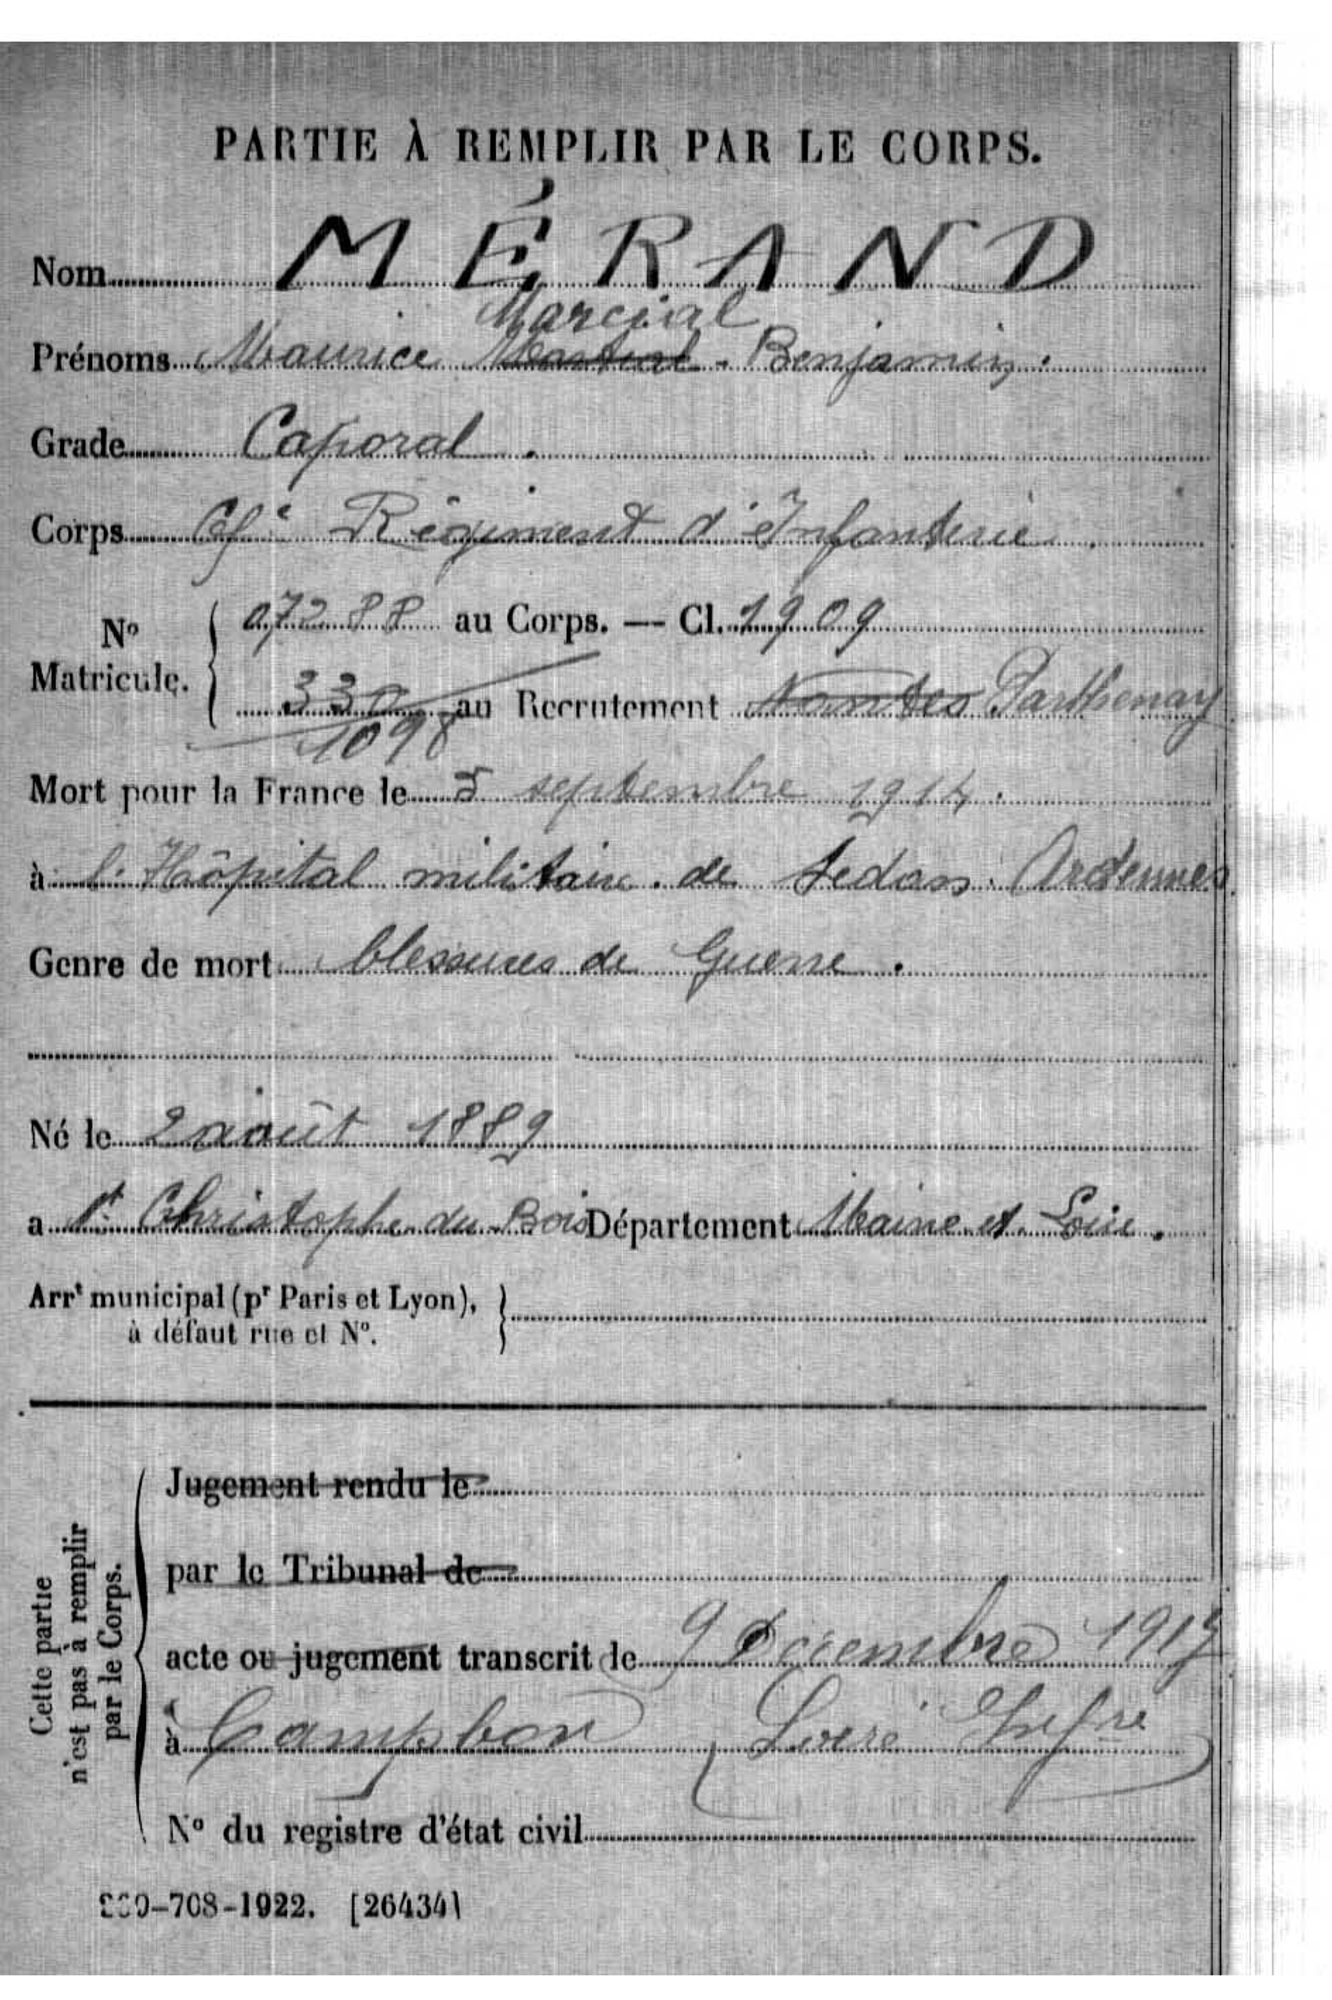 PARTIE À REMPLIR PAR LE CORPS.
Nom MÉRAND
Marcial
Prénoms Maurice Martial - Benjamin.
Grade Caporal.
Corps Régiment d'Infanterie.
N° Matricule. 07288 au Corps. — Cl. 1909
330 au Recrutement Nantes Parthenay
1098
Mort pour la France le 5 septembre 1914.
à l'Hôpital militaire de Sedan. Ardennes
Genre de mort blessures de Guerre.
Né le 2 août 1889
a St Christophe du Bois Département Maine et Loire.
Arrt municipal (pr Paris et Lyon),
à défaut rue et N°.
Cette partie
n'est pas à remplir
par le Corps.
Jugement rendu le
par le Tribunal de
acte ou jugement transcrit le 9 Décembre 1917
à Campbon (Loire Infre)
N° du registre d'état civil
-708-1922. [26434]